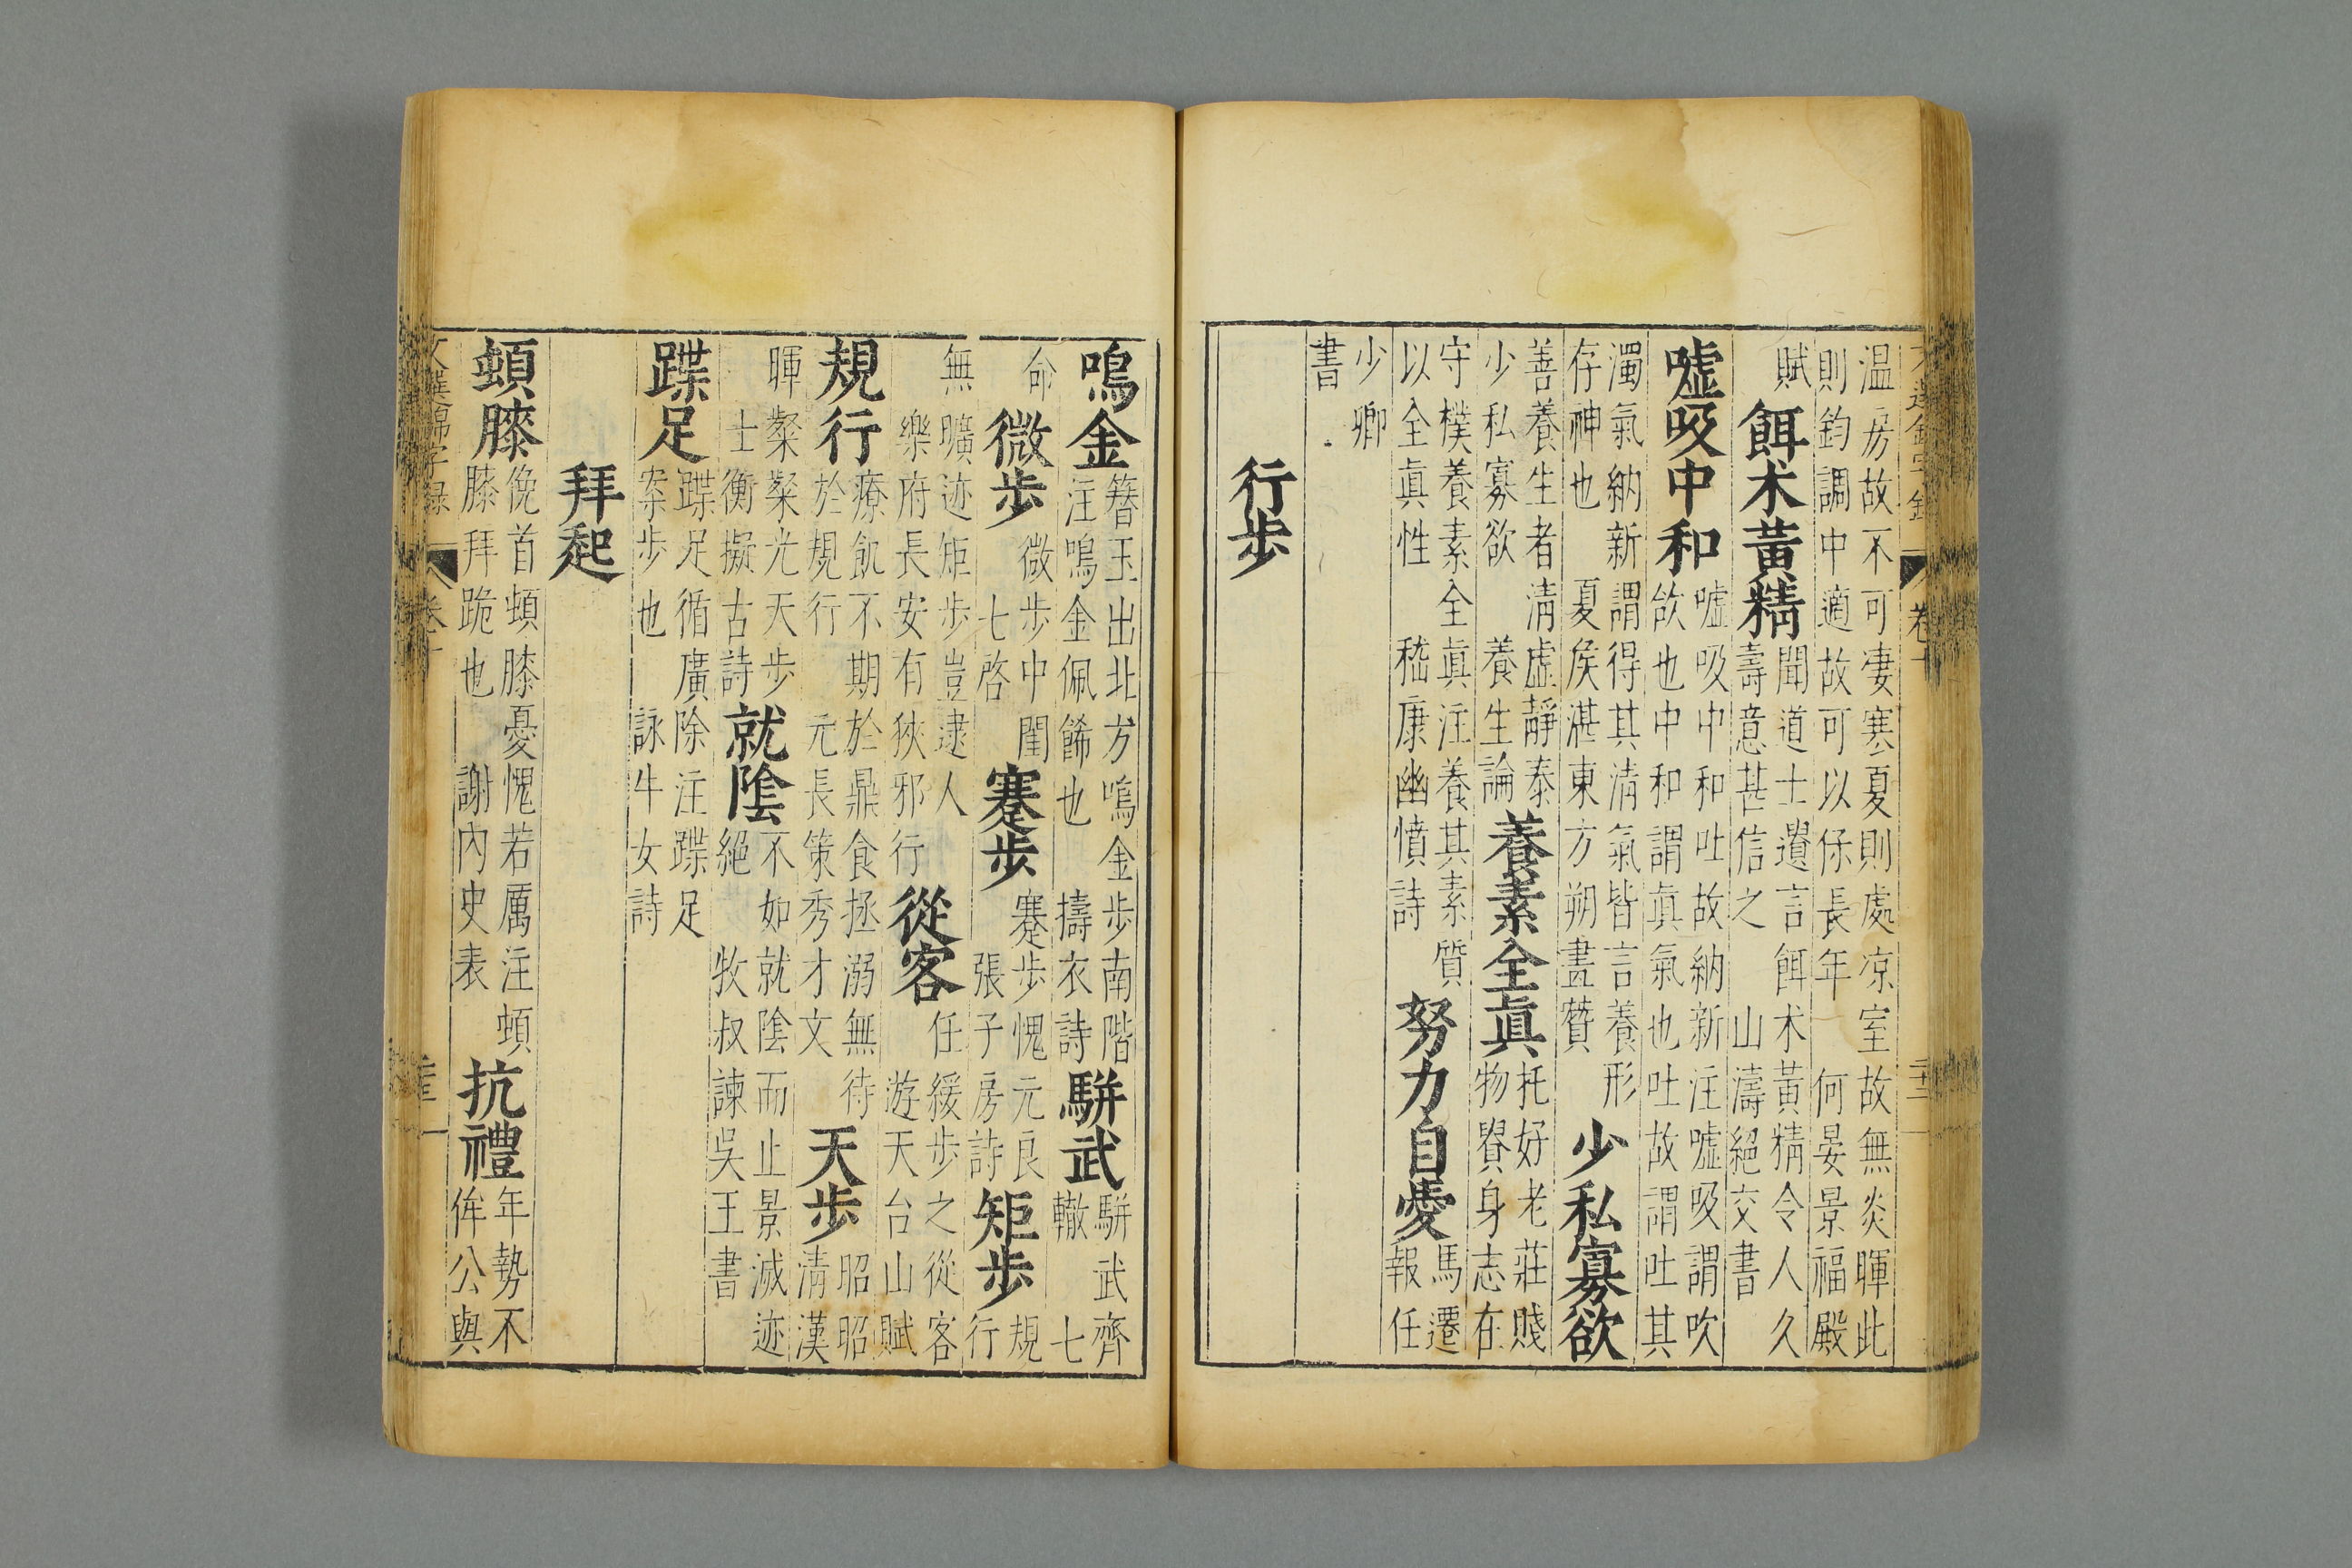 溫房故不可凄寒夏則處凉室故無炎暉此
則鈞調中適故可以保長年 何晏景福殿
賦 餌术黃精 聞道士遺言餌术黃精令人久
壽意甚信之 山濤絕交書
噓吸中和 噓吸中和吐故納新注噓吸謂吹
欱也中和謂眞氣也吐故謂吐其
濁氣納新謂得其淸氣皆言養形
存神也 夏侯湛東方朔畫贊 少私寡欲
善養生者淸虛靜泰
少私寡欲 養生論 養素全眞 托好老莊賤
物貴身志在
守樸養素全眞注養其素質
以全眞性 嵇康幽憤詩 努力自愛 馬遷
報任
少卿
書
行步
鳴金 簪玉出北方鳴金步南階
注鳴金佩飾也 擣衣詩 騈武 騈武齊
轍 七
命 微步 微步中閨
七啓 蹇步 蹇步愧元良
張子房詩 矩步 規
行
無曠迹矩步豈逮人
樂府長安有狹邪行 從容 任緩步之從容
遊天台山賦
規行 療飢不期於鼎食拯溺無待
於規行 元長策秀才文 天步 昭昭
淸漢
暉粲粲光天步
士衡擬古詩 就陰 不如就陰而止景滅迹
絕 牧叔諫吳王書
蹀足 蹀足循廣除注蹀足
案步也 詠牛女詩
拜起
頓膝 俛首頓膝憂愧若厲注頓
膝拜跪也 謝內史表 抗禮 年勢不
侔公與
卷十